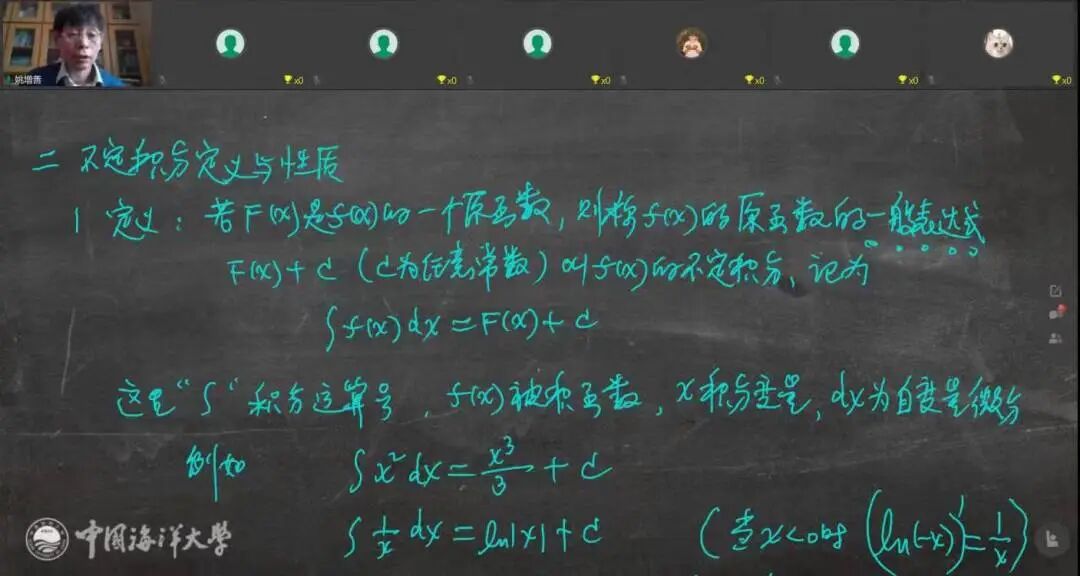 姚增善
x0 x0 x0 x0 x0 x0
二 不定积分定义与性质
1 定义：若F(x)是f(x)的一个原函数，则称f(x)的原函数的一般表达式
F(x)+C（C为任意常数）叫f(x)的不定积分，记为
∫f(x)dx=F(x)+C
这里“∫”积分运算号，f(x)被积函数，x积分变量，dx为自变量微分
例如 ∫x²dx=x³/3+C
∫1/x dx=ln|x|+C （当x<0时 (ln(-x))'=1/x）
中国海洋大学